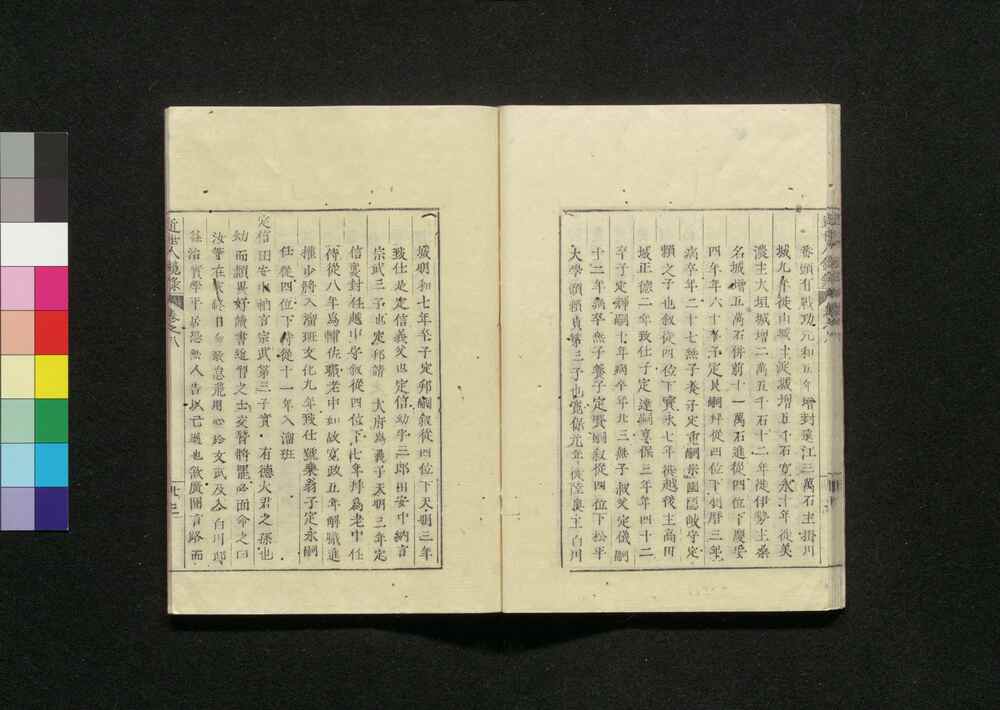 番頭有戰功元和五年増封遠江三萬石主掛川
城九年徙山城主淀城增五千石寬永十年徙美
濃主大垣城增二萬五千石十二年徙伊勢主桑
名城增五萬石併前十一萬石進從四位下慶安
四年年六十卒子定良嗣拜從四位下明曆三年
病卒年二十七無子養子定重嗣宗圍隱岐守定
賴之子也叙從四位下寶永七年徙越後主高田
城正德二年致仕子定達嗣享保三年年四十二
卒子定輝嗣十年病卒年廿三無子叔父定儀嗣
十二年病卒無子養子定賢嗣叙從四位下松平
大學頭賴貞第三子也寛保元年徙陸奥主白川
城明和七年卒子定邦嗣叙從四位下天明三年
致仕是定信義父也定信幼字三郎田安中納言
宗武三子也定邦請大府為義子天明三年定
信襲封任越中守叙從四位下七年拜為老中任
侍從八年為輔佐職老中如故寛政五年解職進
權少將入溜班文化九年致仕號樂翁子定永嗣
任從四位下侍從十一年入溜班
定信田安中納言宗武第三子實有德大君之孫也
幼而穎異好讀書近習之士交替將罷必面命之曰
汝等在家終日勿敢怠飛用心於文武及令白川邸
政治實學平居恐無人告以亡過也欲廣開言路而
近世人鏡録 卷之八 廿二